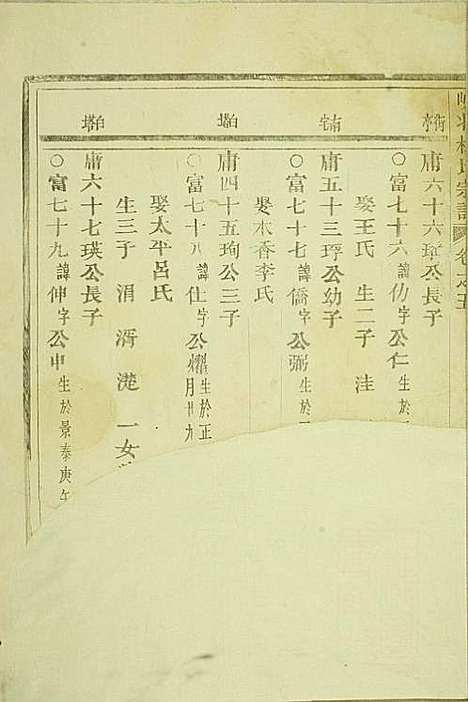 宗譜 卷之五
庸六十六璋公長子
○富七十六諱仂字公仁生於
娶王氏 生二子 洼
庸五十三琈公幼子
○富七十七諱僑字公弼生於
娶木香李氏
庸四十五珣公三子
○富七十八諱仕字公燿生於正月廿九
娶太平呂氏
生三子 涓 湑 漇 一女
庸六十七瑛公長子
○富七十九諱伸字公申生於景泰庚午